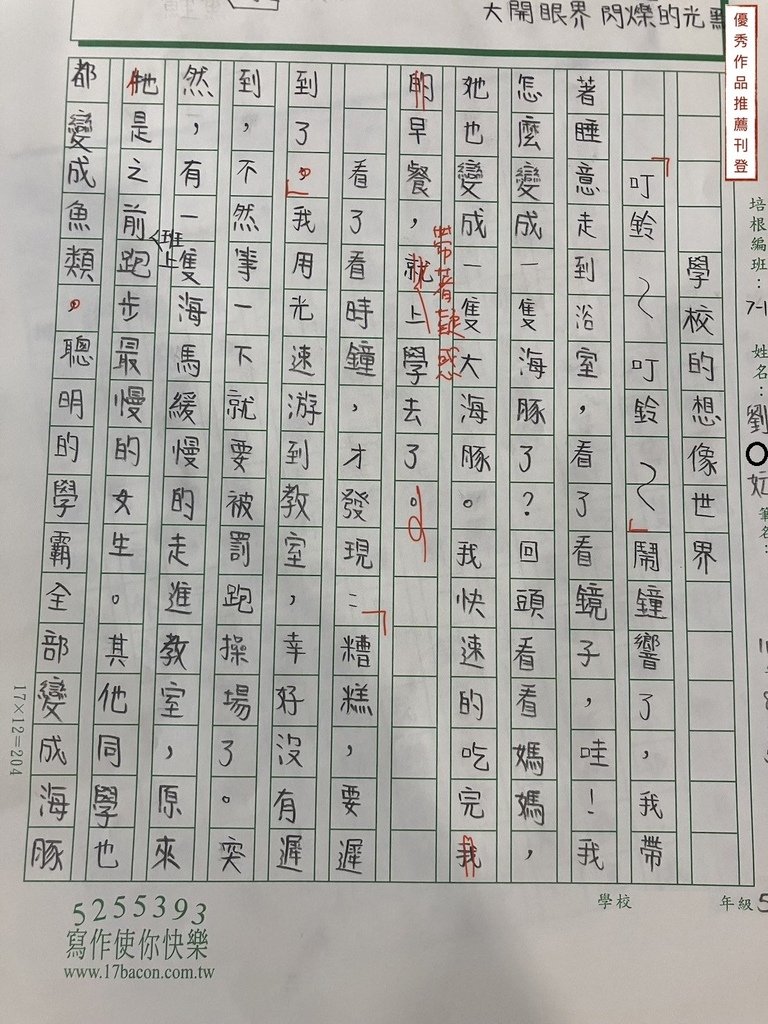 大開眼界 閃爍的光點
優秀作品推薦刊登
培根編班：7-1
姓名：劉
筆名：
學校的想像世界
「叮鈴～叮鈴～」鬧鐘響了，我帶
著睡意走到浴室，看了看鏡子，哇！我
怎麼變成一隻海豚了？回頭看看媽媽，
她也變成一隻大海豚。我快速的吃完我
的早餐，就上學去了。
帶著疑惑
看了看時鐘，才發現：「糟糕，要遲
到了。」我用光速游到教室，幸好沒有遲
到，不然事一下就要被罰跑操場了。突
然，有一隻海馬緩慢的走進教室，原來
牠是之前跑步最慢的女生。其他同學也
班上
都變成魚類。聰明的學霸全部變成海豚
17×12=204
學校
年級5
5255393
寫作使你快樂
www.17bacon.com.tw